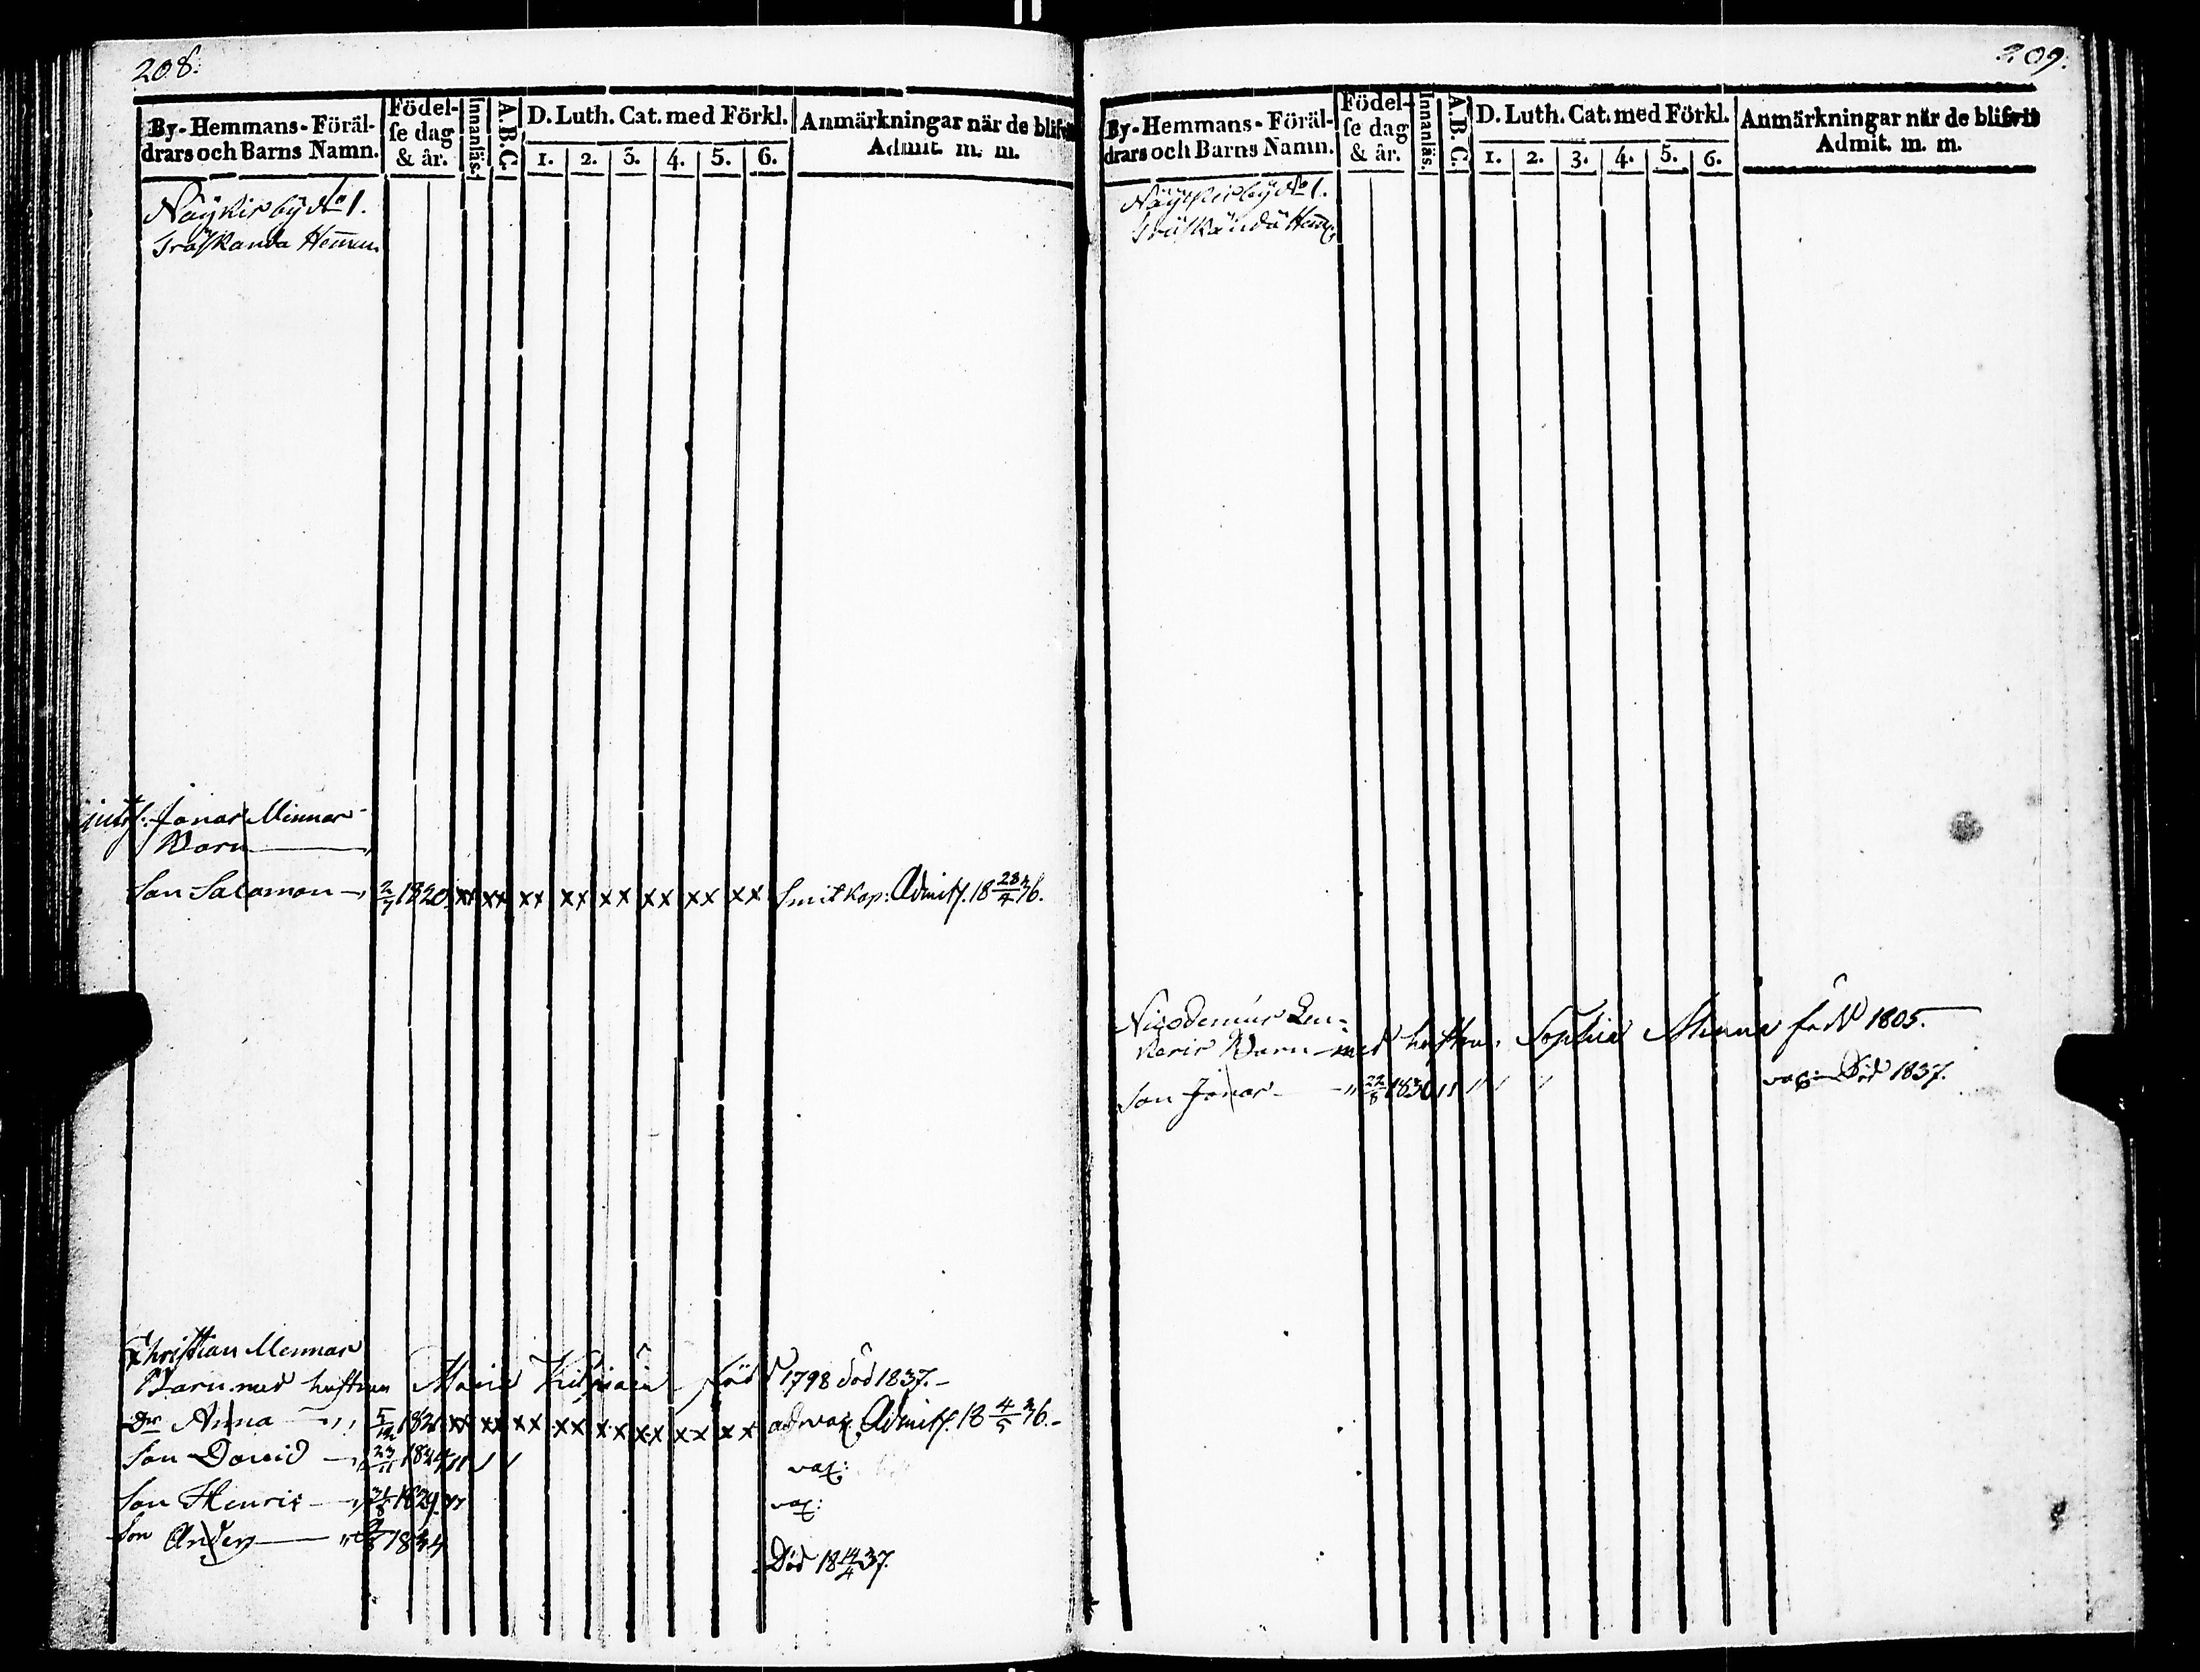 208.
By-Hemmans-Föräl-
drars och Barns Namn.
Födel-
se dag
& år.
Innanläs.
A.B.C.
D. Luth. Cat. med Förkl.
1. 2. 3. 4. 5. 6.
Anmärkningar när de blifvit
Admit. m. m.
Näykisby No 1.
Träskända Hemm.
Jonas Minnas
Barn
Son Salomon 2/7 1820. xx xx xx xx xx xx xx xx Smitkop: Admitt. 18 28/4 36.
Christian Mennas
Barn med hustrun Maria född 1798 död 1837.
Dr Anna 5/12 1821 xx xx xx xx xx xx xx xx Admitt. 18 4/5 36.
Son David 23/11 1824 vac:
Son Henric 31/8 1829 vac:
Son Anders 1834 Död 18 14/4 37.
209.
By-Hemmans-Föräl-
drars och Barns Namn.
Födel-
se dag
& år.
Innanläs.
A.B.C.
D. Luth. Cat. med Förkl.
1. 2. 3. 4. 5. 6.
Anmärkningar när de blifvit
Admit. m. m.
Näykisby No 1.
Träskända Hemm.
Nicodemus
Barn med hustrun Sophia född 1805.
Son Jonas 22/8 1830 vac: Död 1837.